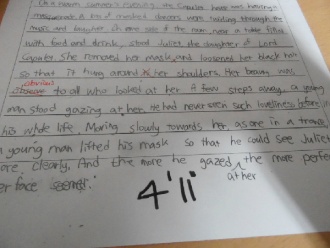 On a warm summer's evening, the Capulet house was having a
masquerade. A lot of masked dancers were twirling through the
music and laughter. On one side of the room, near a table filled
with food and drink, stood Juliet the daughter of Lord
Capulet. She removed her mask and loosened her black hair
so that it hung around her shoulders. Her beauty was
obvious
to all who looked at her. A few steps away, a young
man stood gazing at her. He had never seen such loveliness before in
his whole life. Moving slowly towards her as ore in a trance,
young man lifted his mask so that he could see Juliet
ore clearly, And the more he gazed the more perfe
er face seemed.
at her
4'11